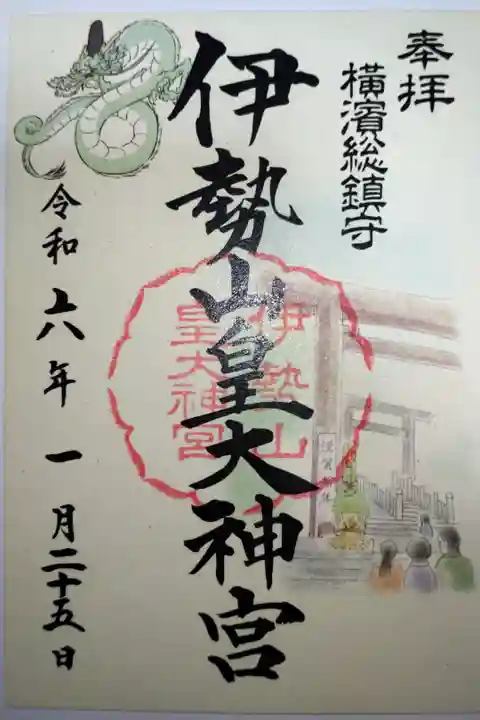 奉拝
横濱総鎮守
伊勢山皇大神宮
伊勢山
皇大神宮
令和六年一月二十五日